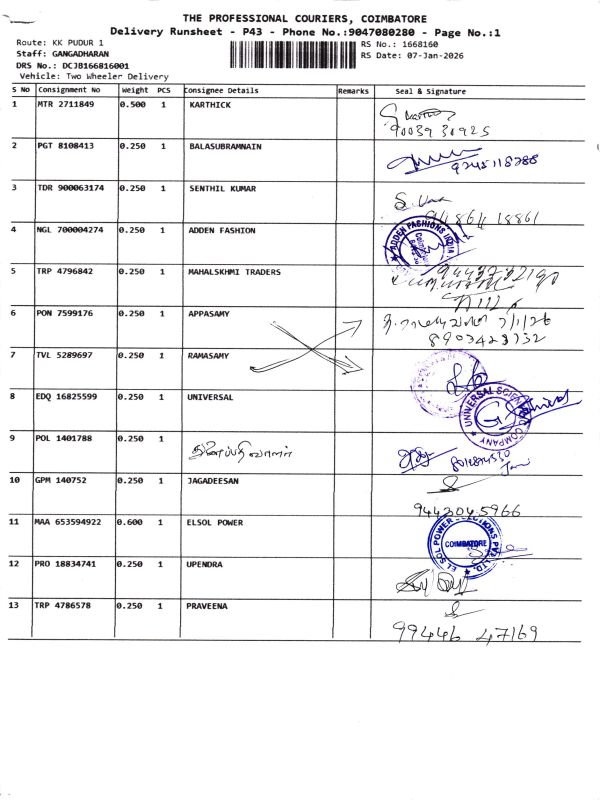 THE PROFESSIONAL COURIERS, COIMBATORE
Delivery Runsheet - P43 - Phone No.:9047080280 - Page No.:1
Route: KK PUDUR 1
Staff: GANGADHARAN
DRS No.: DCJB166816001
Vehicle: Two Wheeler Delivery
RS No.: 1668160
RS Date: 07-Jan-2026
S No Consignment No Weight PCS Consignee Details Remarks Seal & Signature
1 MTR 2711849 0.500 1 KARTHICK
9003930925
2 PGT 8108413 0.250 1 BALASUBRAMNAIN
9245118288
3 TDR 900063174 0.250 1 SENTHIL KUMAR
9486418861
4 NGL 700004274 0.250 1 ADDEN FASHION
ADDEN FASHIONS INDIA
5 TRP 4796842 0.250 1 MAHALSKHMI TRADERS
6 PON 7599176 0.250 1 APPASAMY
7/1/26
8903423732
7 TVL 5289697 0.250 1 RAMASAMY
8 EDQ 16825599 0.250 1 UNIVERSAL
UNIVERSAL SCIENTIFIC COMPANY
9 POL 1401788 0.250 1
10 GPM 140752 0.250 1 JAGADEESAN
9443045966
11 MAA 653594922 0.600 1 ELSOL POWER
EL SOL POWER SOLUTIONS PVT. LTD.
COIMBATORE
12 PRO 18834741 0.250 1 UPENDRA
13 TRP 4786578 0.250 1 PRAVEENA
99446 47169